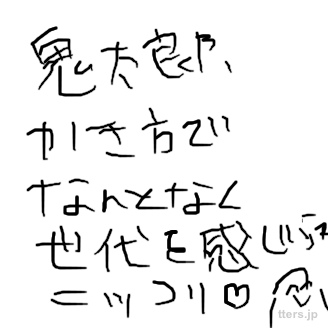 鬼太郎や、
かき方で
なんとなく
世代を感じ
ニッコリ♡
tters.jp